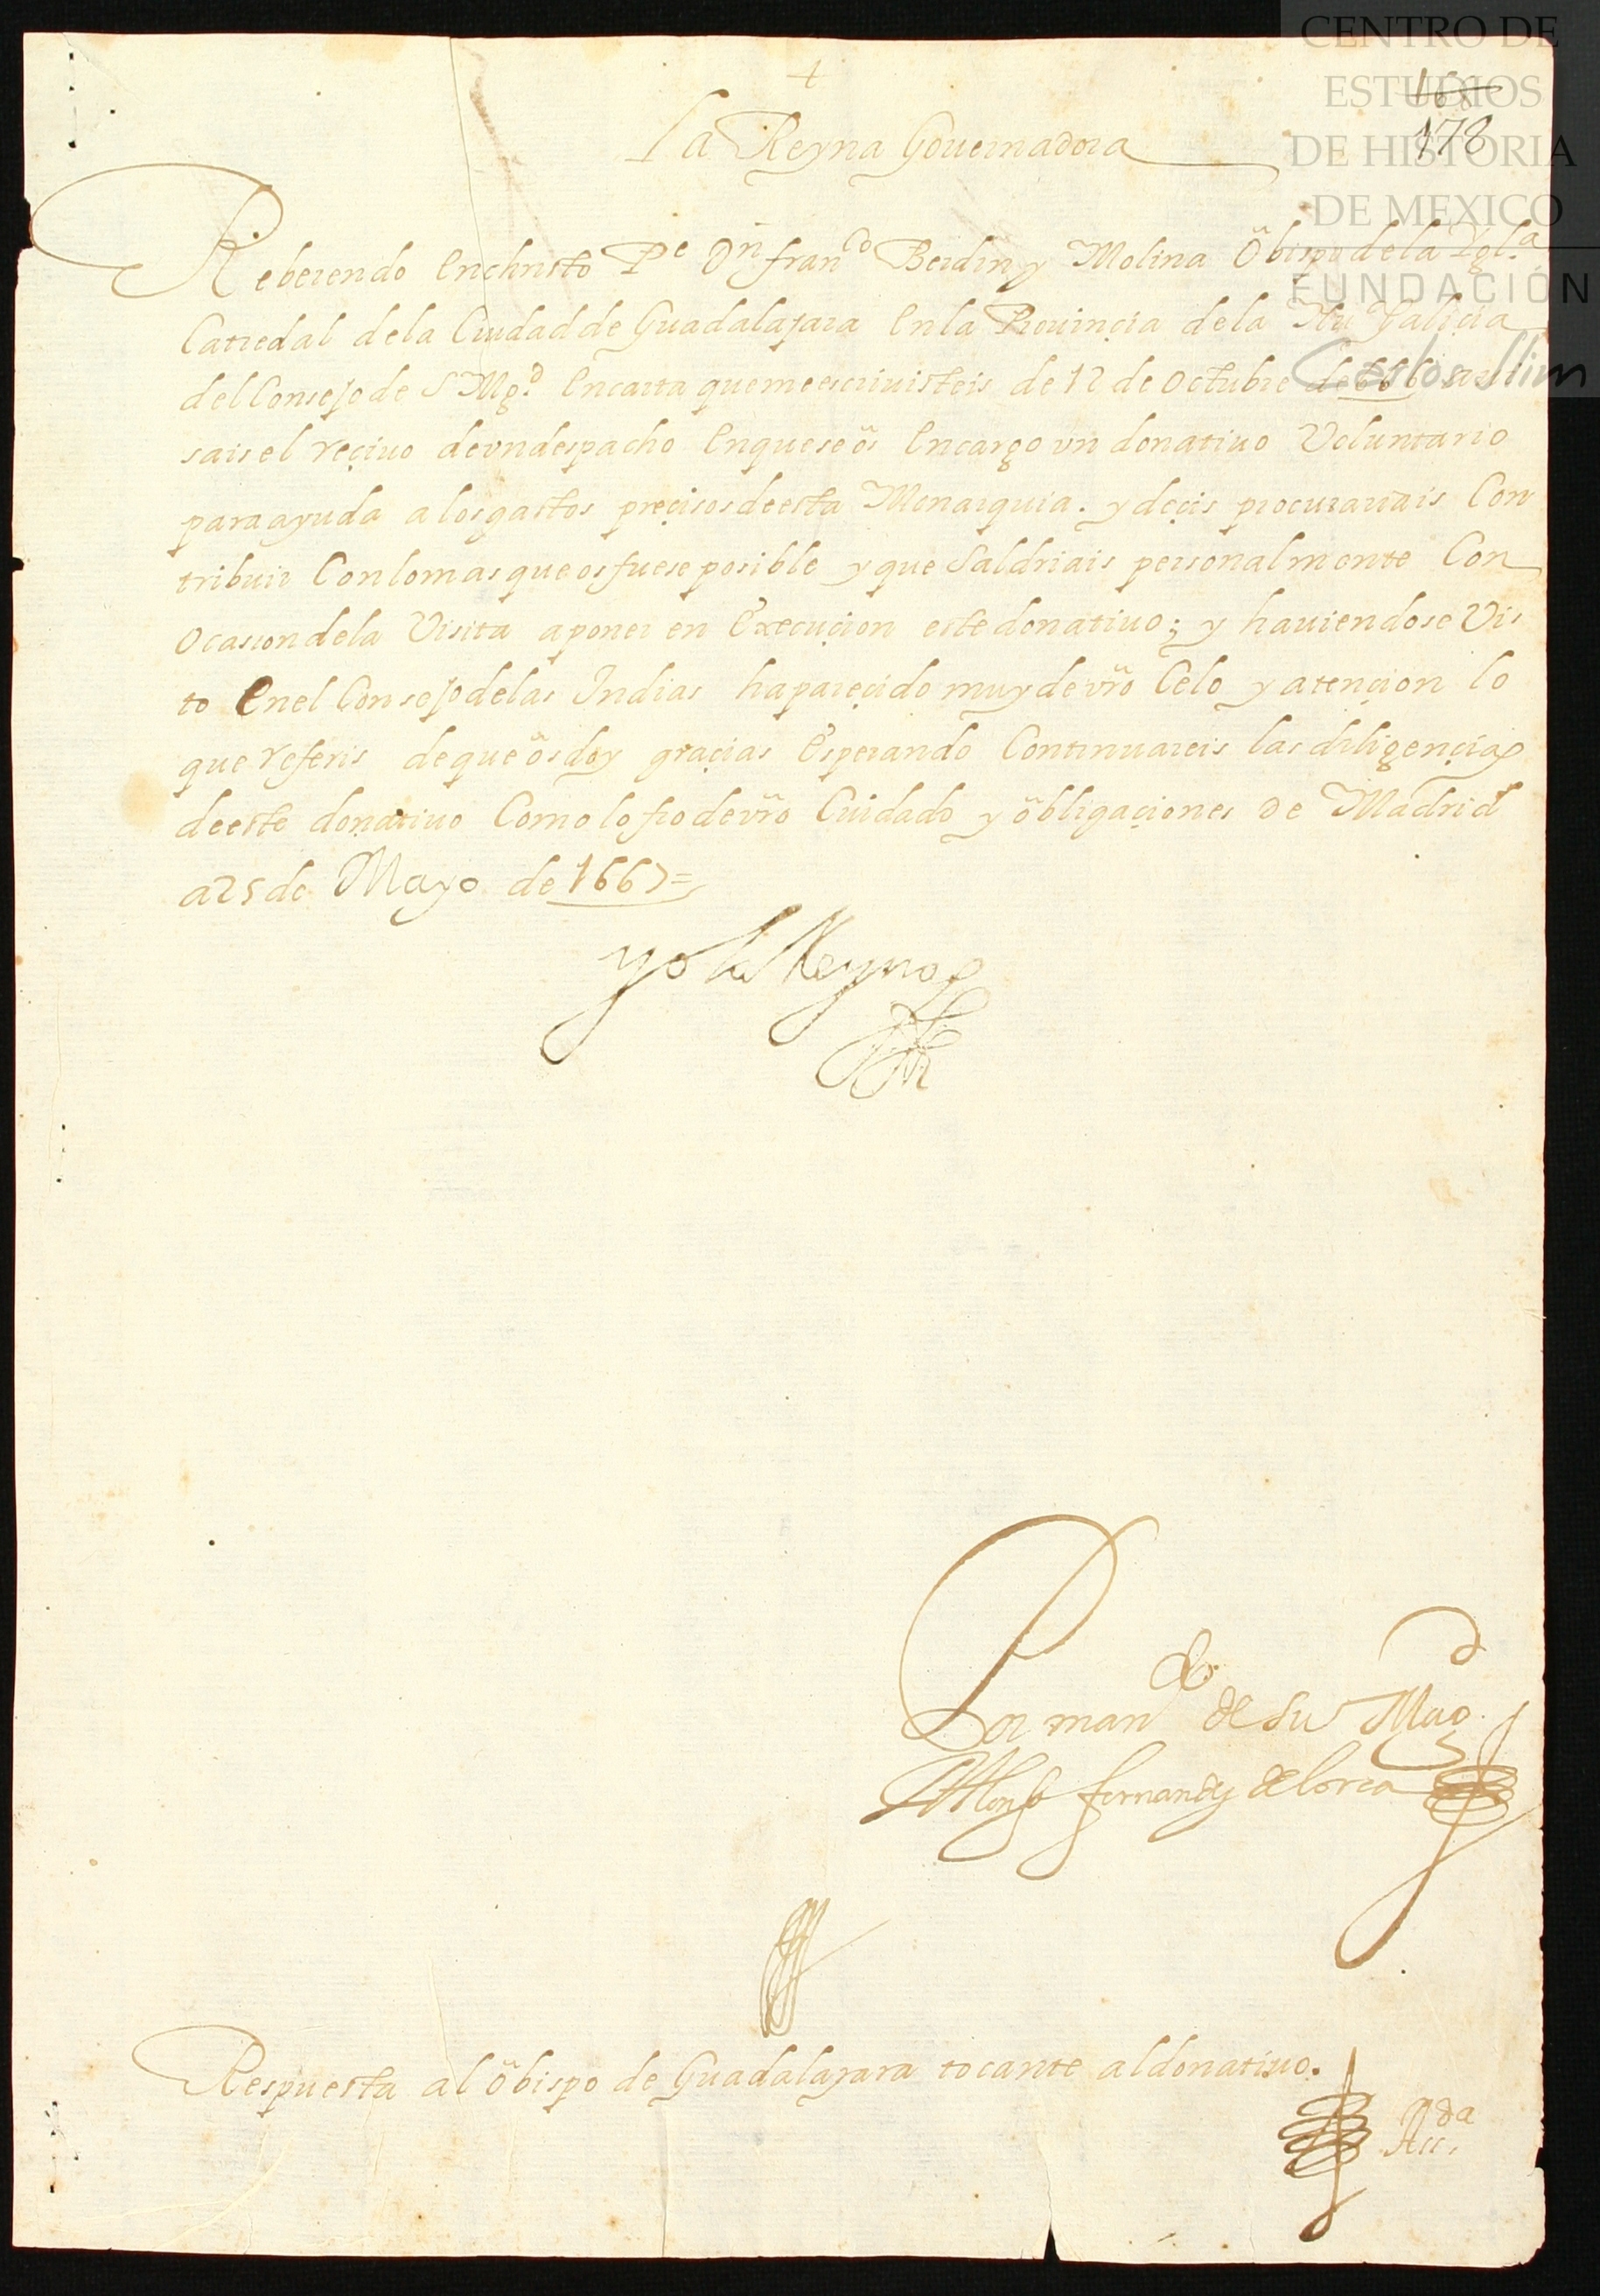 CENTRO DE
ESTUDIOS
DE HISTORIA
DE MEXICO
FUNDACIÓN
Carlos Slim
168
178
+
La Reyna Gouernadora
Reberendo en christo Pe Dn franco Berdin y Molina Obispo de la Ygla
Catredal de la Ciudad de Guadalajara en la Prouinçia de la Nu Galiçia
del Consejo de S Mgd en carta que me escriuisteis de 12 de Octubre de 666
sais el reçiuo de un despacho en que se os encargo un donatiuo Voluntario
para ayuda a los gastos preçisos de esta Monarquia. y deçis procurariais Con
tribuir Con lo mas que os fuese posible y que Saldriais personalmente Con
ocasion de la Visita a poner en execuçion este donatiuo; y hauiendose Vis
to en el Consejo de las Indias ha pareçido muy de vro Celo y atençion lo
que referis de que os doy graçias esperando Continuareis las diligençias
de este donatiuo Como lo fio de vro Cuidado y obligaçiones de Madrid
a 25 de Mayo de 1667=
yo la Reyna
Por mando de su Magd
Alonso fernandez de lorca
Respuesta al obispo de Guadalajara tocante al donatiuo.